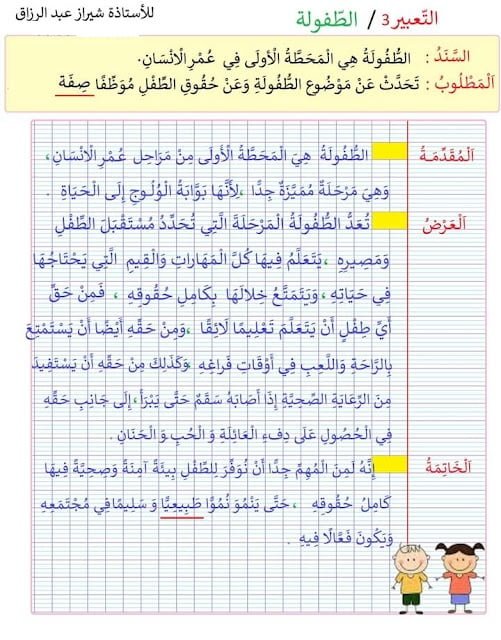 التّعبير3 / الطّفولة للأستاذة شيراز عبد الرزاق
السَّنَدُ : الطُّفُولَةُ هِيَ الْمَحَطَّةُ الْأُولَى فِي عُمْرِ الْانْسَانِ.
اَلْمَطْلُوبُ : تَحَدَّثْ عَنْ مَوْضُوعِ الطُّفُولَةِ وَعَنْ حُقُوقِ الطِّفْلِ مُوَظِّفًا صِفَة
اَلْمُقَدِّمَةُ الطُّفُولَةُ هِيَ الْمَحَطَّةُ الْأُولَى مِنْ مَرَاحِلِ عُمْرِ الْانْسَانِ،
وَهِيَ مَرْحَلَةٌ مُمَيَّزَةٌ جِدًّا ،لِأَنَّهَا بَوَّابَةُ الْوُلُوجِ إِلَى الْحَيَاةِ .
اَلْعَرْضُ تُعَدُّ الطُّفُولَةُ الْمَرْحَلَةَ الَّتِي تُحَدِّدُ مُسْتَقْبَلَ الطِّفْلِ
وَمَصِيرِهِ ،يَتَعَلَّمُ فِيهَا كُلَّ الْمَهَارَاتِ وَالْقِيَمِ الَّتِي يَحْتَاجُهَا
فِي حَيَاتِهِ ،وَيَتَمَتَّعُ خِلَالَهَا بِكَامِلِ حُقُوقِهِ ، فَمِنْ حَقِّ
أَيِّ طِفْلٍ أَنْ يَتَعَلَّمَ تَعْلِيمًا لَائِقًا ،وَمِنْ حَقِّهِ أَيْضًا أَنْ يَسْتَمْتِعَ
بِالرَّاحَةِ وَاللَّعِبِ فِي أَوْقَاتِ فَرَاغِهِ ،وَكَذَلِكَ مِنْ حَقِّهِ أَنْ يَسْتَفِيدَ
مِنَ الرِّعَايَةِ الصِّحِيَّةِ إِذَا أَصَابَهُ سَقَمٌ حَتَّى يَبْرَأَ، إِلَى جَانِبِ حَقِّهِ
فِي الْحُصُولِ عَلَى دِفءِ الْعَائِلَةِ وَ الْحُبِ وَ الْحَنَانِ .
اَلْخَاتِمَةُ إِنَّهُ لَمِنَ الْمُهِمِّ جِدًّا أَنْ نُوَفِّرَ لِلطِّفْلِ بِيئَةً آمِنَةً وَصِحِيَّةً فِيهَا
كَامِلُ حُقُوقِهِ ،حَتَّى يَنْمُوَ نُمُوًّا طَبِيعِيًّا وَ سَلِيمًا فِي مُجْتَمَعِهِ
وَيَكُونَ فَعَّالًا فِيهِ .